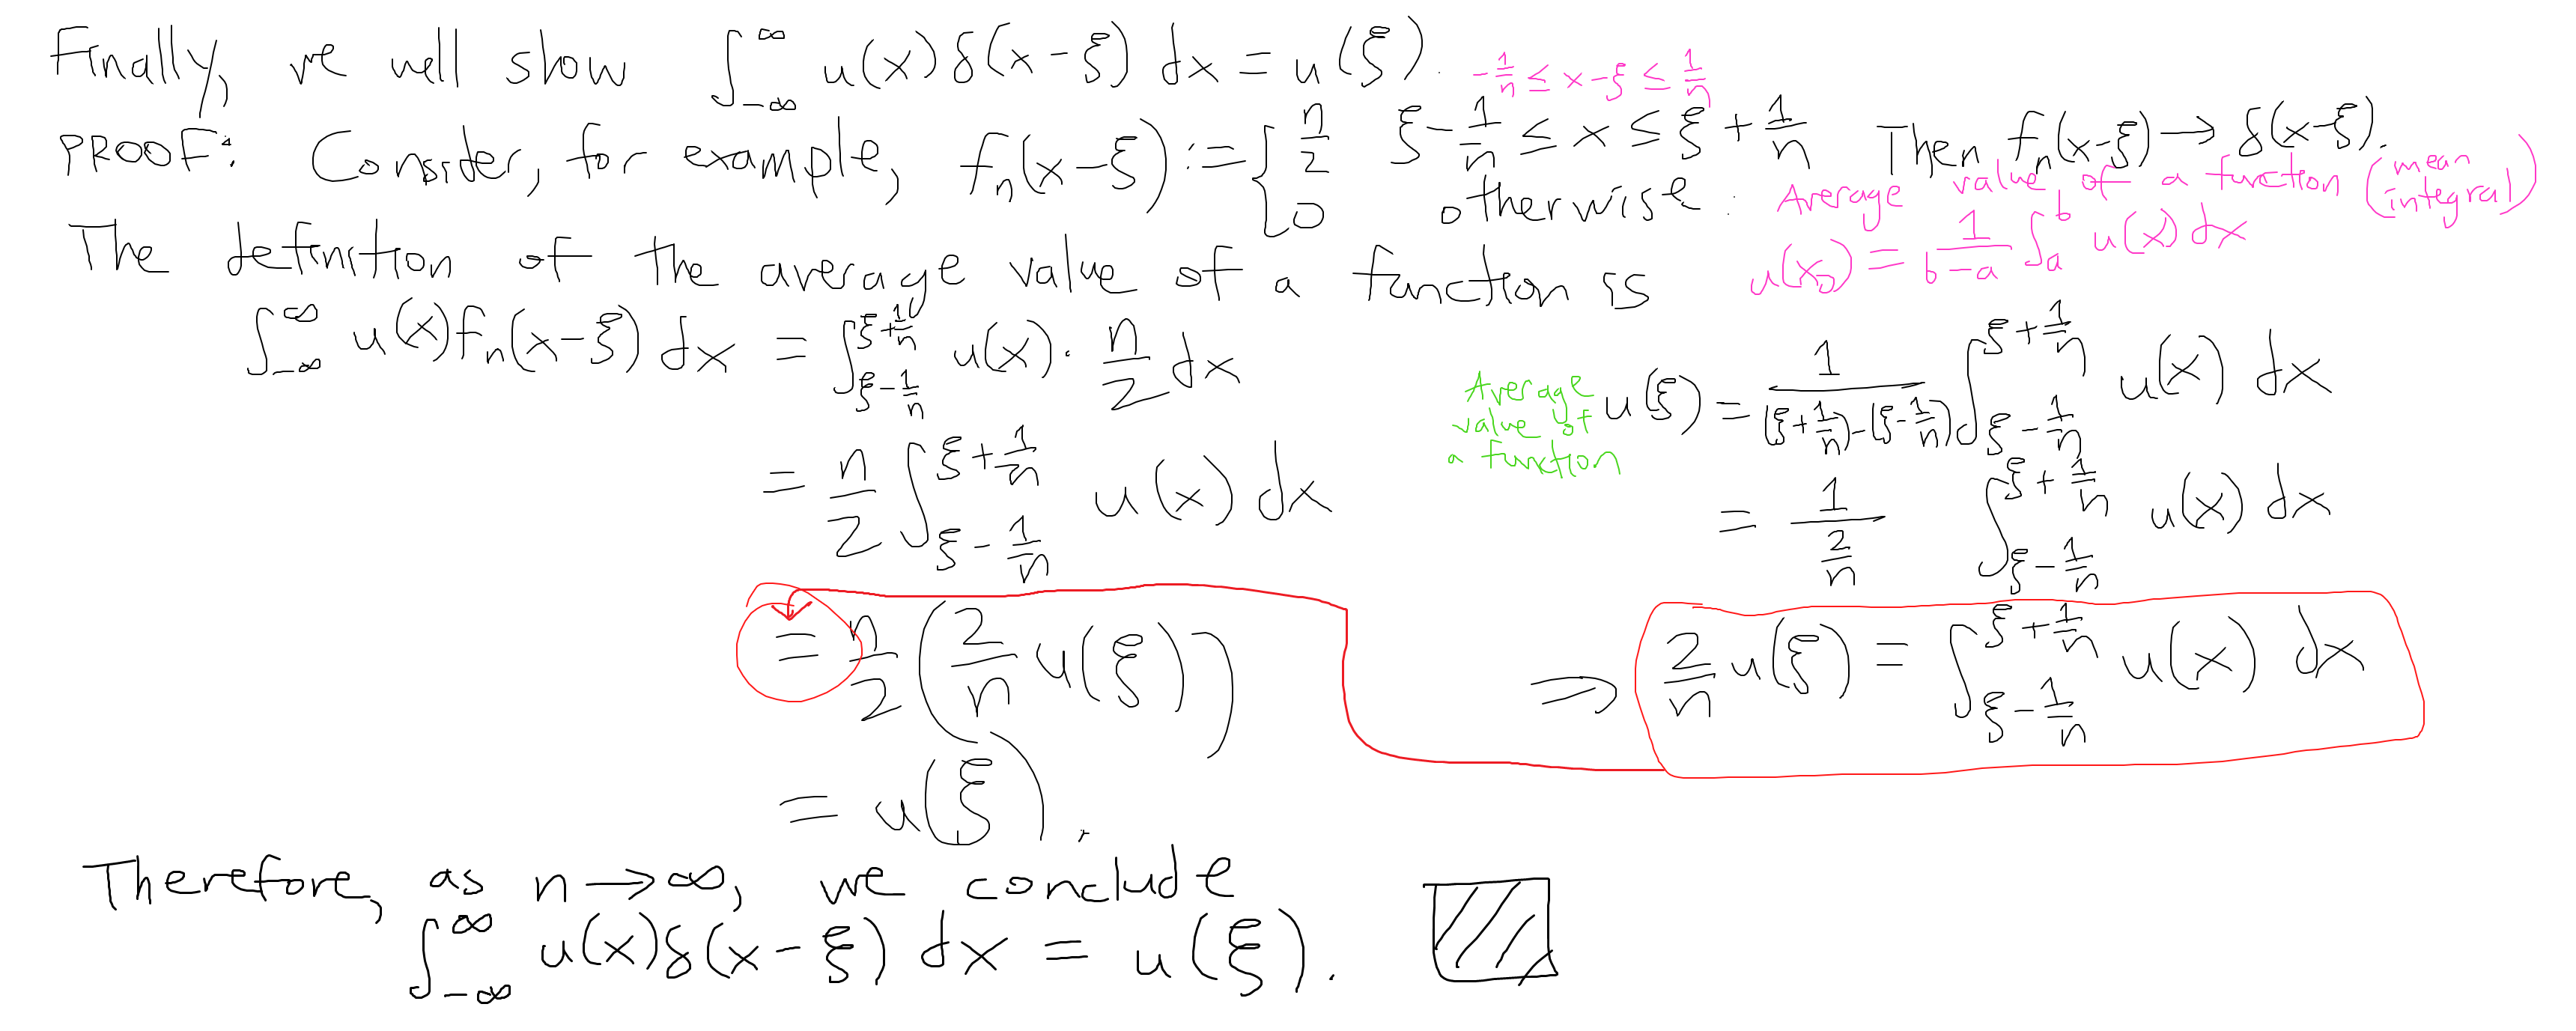 Finally, we will show ∫_{-∞}^{∞} u(x) δ(x-ξ) dx = u(ξ).
-1/n ≤ x-ξ ≤ 1/n
PROOF: Consider, for example, f_n(x-ξ) := { n/2  ξ - 1/n ≤ x ≤ ξ + 1/n  Then f_n(x-ξ) → δ(x-ξ).
0  otherwise.
Average value of a function (mean integral)
u(x_0) = 1/(b-a) ∫_a^b u(x) dx
The definition of the average value of a function is
∫_{-∞}^{∞} u(x) f_n(x-ξ) dx = ∫_{ξ-1/n}^{ξ+1/n} u(x) · n/2 dx
= n/2 ∫_{ξ-1/n}^{ξ+1/n} u(x) dx
= n/2 (2/n u(ξ))
= u(ξ).
Average
value of
a function
u(ξ) = 1/((ξ+1/n)-(ξ-1/n)) ∫_{ξ-1/n}^{ξ+1/n} u(x) dx
= 1/(2/n) ∫_{ξ-1/n}^{ξ+1/n} u(x) dx
⇒ 2/n u(ξ) = ∫_{ξ-1/n}^{ξ+1/n} u(x) dx
Therefore, as n → ∞, we conclude
∫_{-∞}^{∞} u(x) δ(x-ξ) dx = u(ξ).